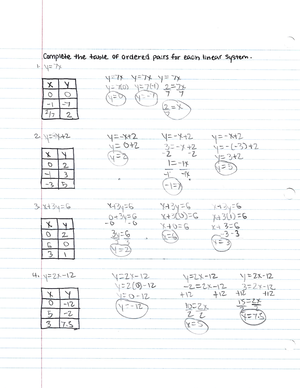 Complete the table of ordered pairs for each linear system.
1. y=7x
x y
0 0
-1 -7
2/7 2
y=7x y=7x y=7x
y=7(0) y=7(-1) 2=7x
7 7
y=0 y=-7 2/7=x
2. y=-x+2
x y
0 2
-1 3
-3 5
y=-x+2 y=-x+2 y=-x+2
y=0+2 3=-x+2 y=-(-3)+2
y=2 -2 -2 y=3+2
1=-1x y=5
-1 -1x
-1=x
3. x+3y=6
x y
0 2
6 0
3 1
x+3y=6 x+3y=6 x+3y=6
0+3y=6 x+3(0)=6 x+3(1)=6
-0 -0 x+0=6 x+3=6
3y=6 x=6 -3 -3
3 3 x=3
y=2
4. y=2x-12
x y
0 -12
5 -2
3 7.5
y=2x-12 y=2x-12 y=2x-12
y=2(0)-12 -2=2x-12 3=2x-12
y=0-12 +12 +12 +12 +12
y=-12 10=2x 15=2x
2 2 2 2
x=5 y=7.5